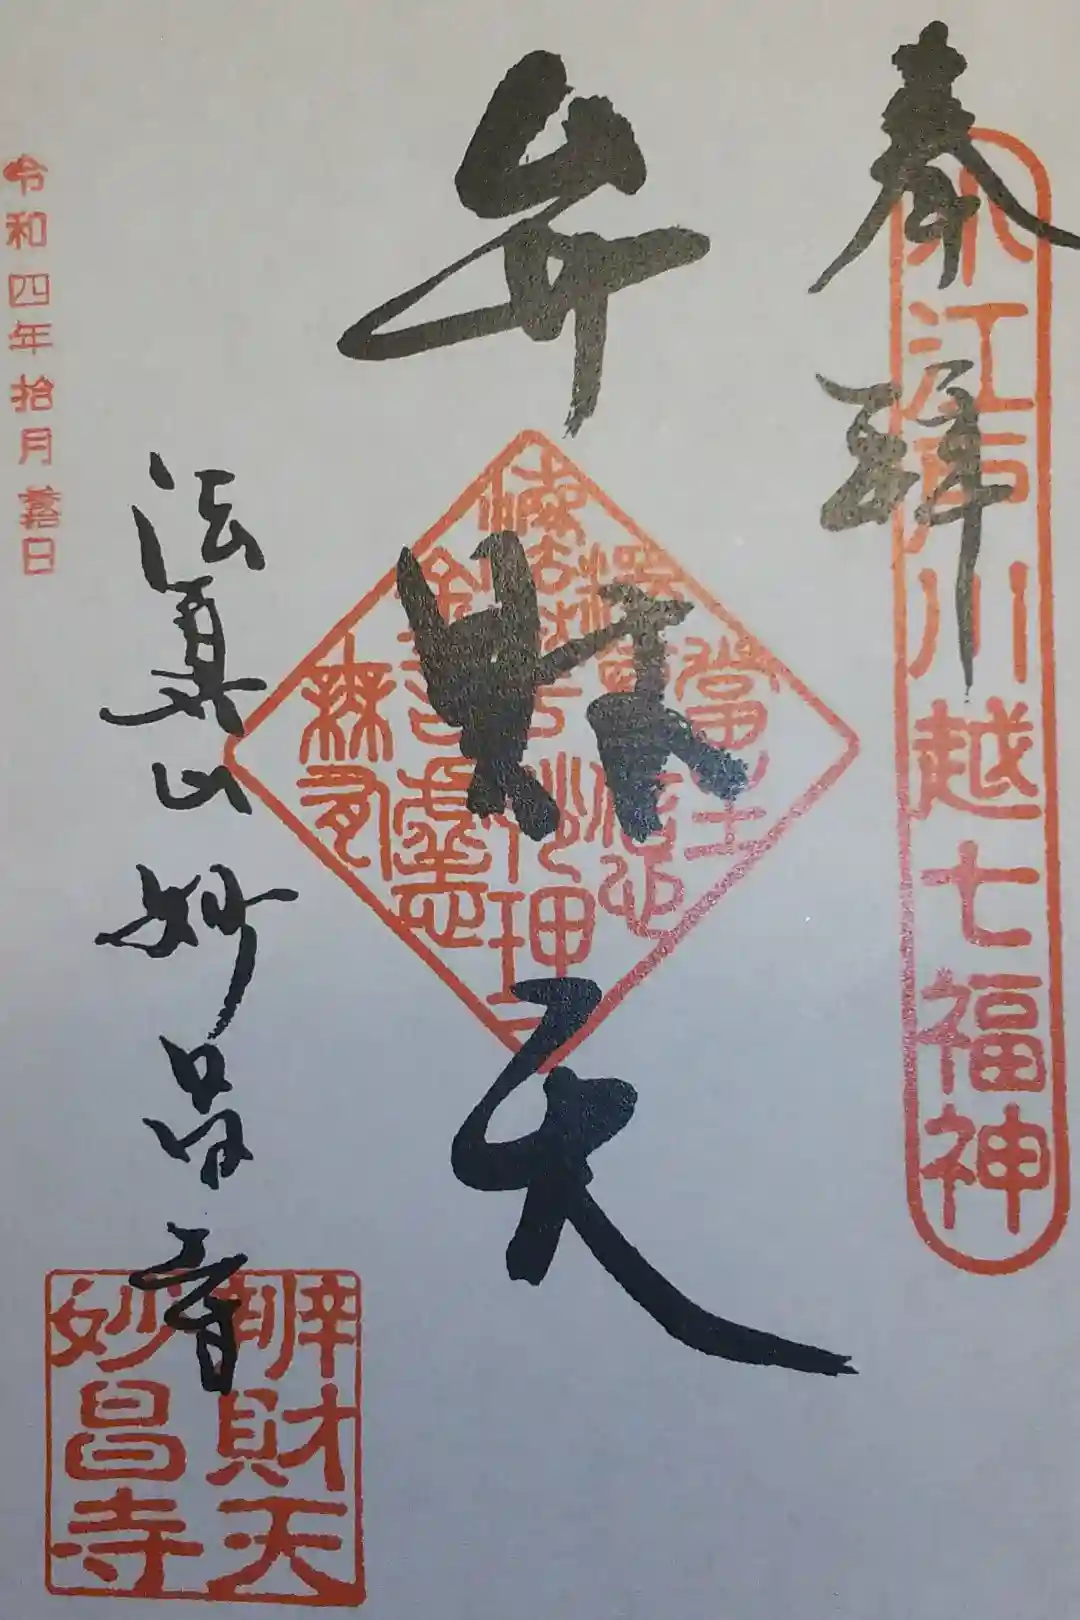 奉拝
小江戸川越七福神
弁財天
法眞山妙昌寺
辨財天
妙昌寺
令和四年拾月 日